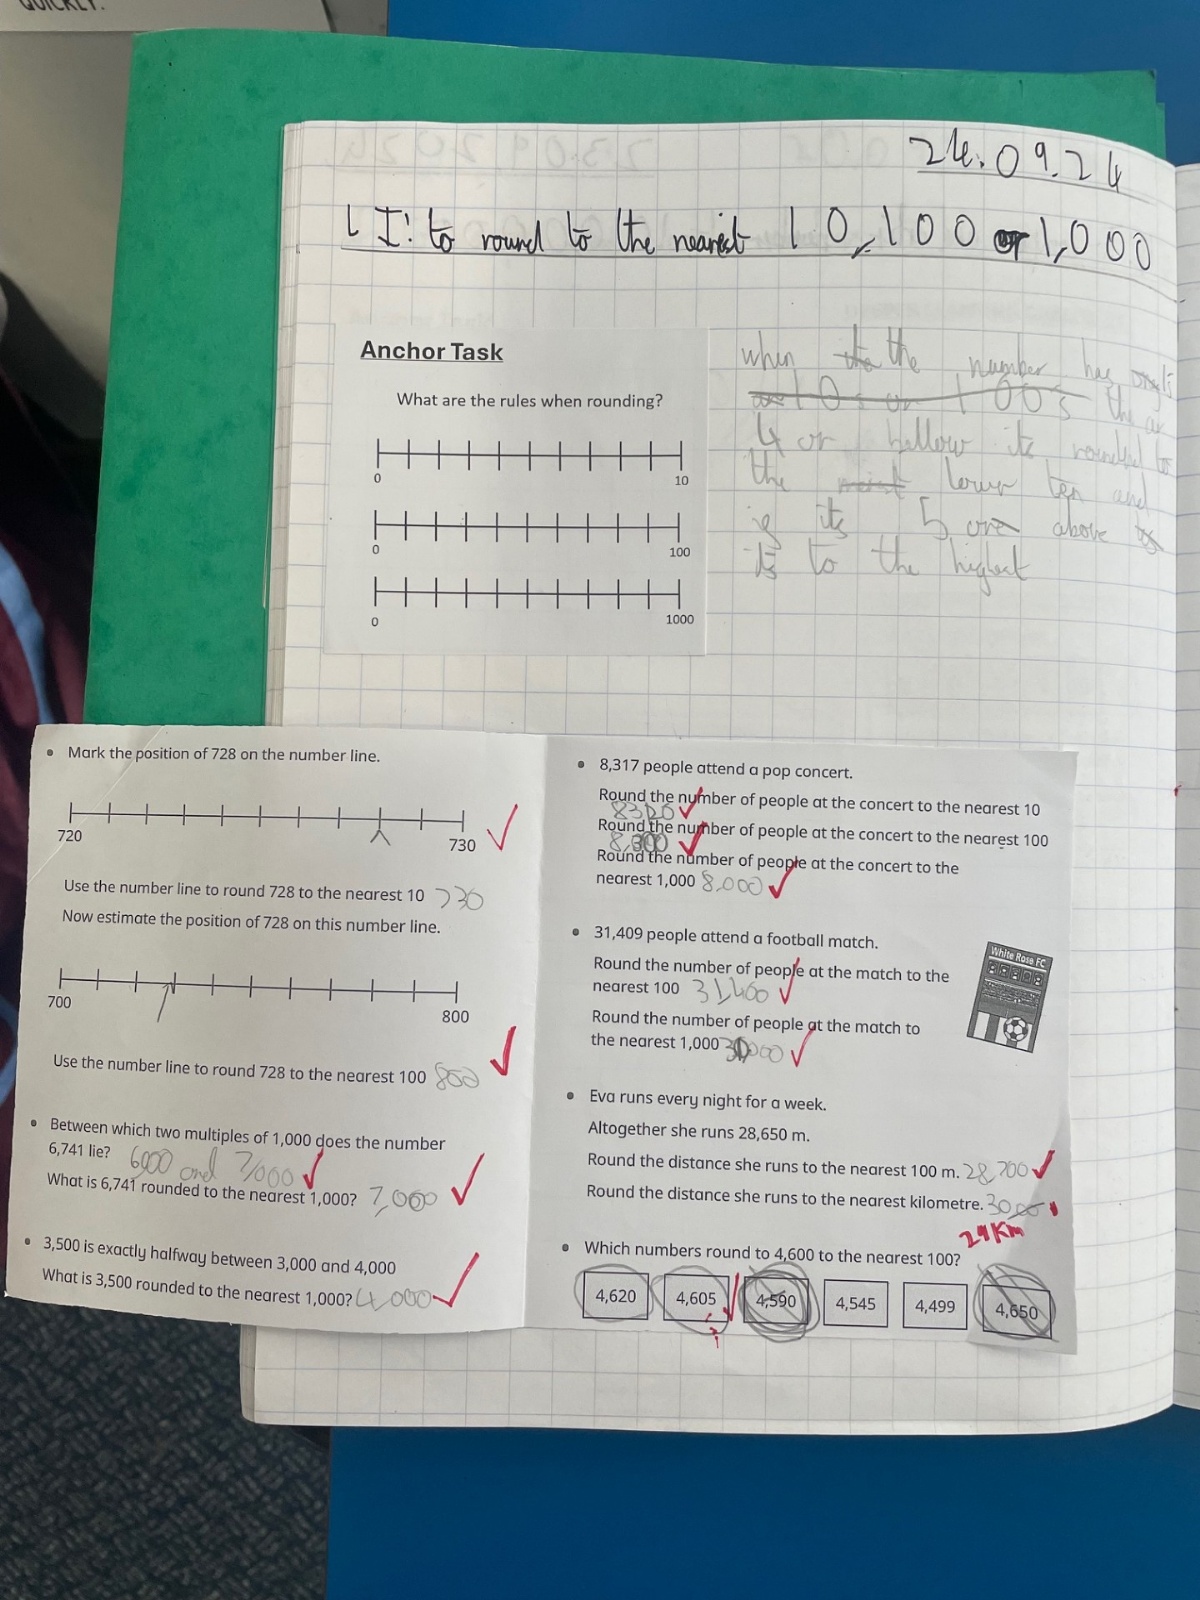 QUICKLY.
24.09.24
LI: to round to the nearest 10,100 or 1,000
Anchor Task
What are the rules when rounding?
0 10
0 100
0 1000
when the the number has
10s or 100s the
4 or bellow its rounded to
the lower ten and
if its 5 ore above
its to the highest
Mark the position of 728 on the number line.
720 730
Use the number line to round 728 to the nearest 10 730
Now estimate the position of 728 on this number line.
700 800
Use the number line to round 728 to the nearest 100 800
Between which two multiples of 1,000 does the number
6,741 lie? 6000 and 7,000
What is 6,741 rounded to the nearest 1,000? 7,000
3,500 is exactly halfway between 3,000 and 4,000
What is 3,500 rounded to the nearest 1,000? 4,000
8,317 people attend a pop concert.
Round the number of people at the concert to the nearest 10
8320
Round the number of people at the concert to the nearest 100
8,300
Round the number of people at the concert to the
nearest 1,000 8,000
31,409 people attend a football match.
White Rose FC
Round the number of people at the match to the
nearest 100 31,400
Round the number of people at the match to
the nearest 1,000
Eva runs every night for a week.
Altogether she runs 28,650 m.
Round the distance she runs to the nearest 100 m. 28,700
Round the distance she runs to the nearest kilometre.
29 Km
Which numbers round to 4,600 to the nearest 100?
4,620 4,605 4,590 4,545 4,499 4,650